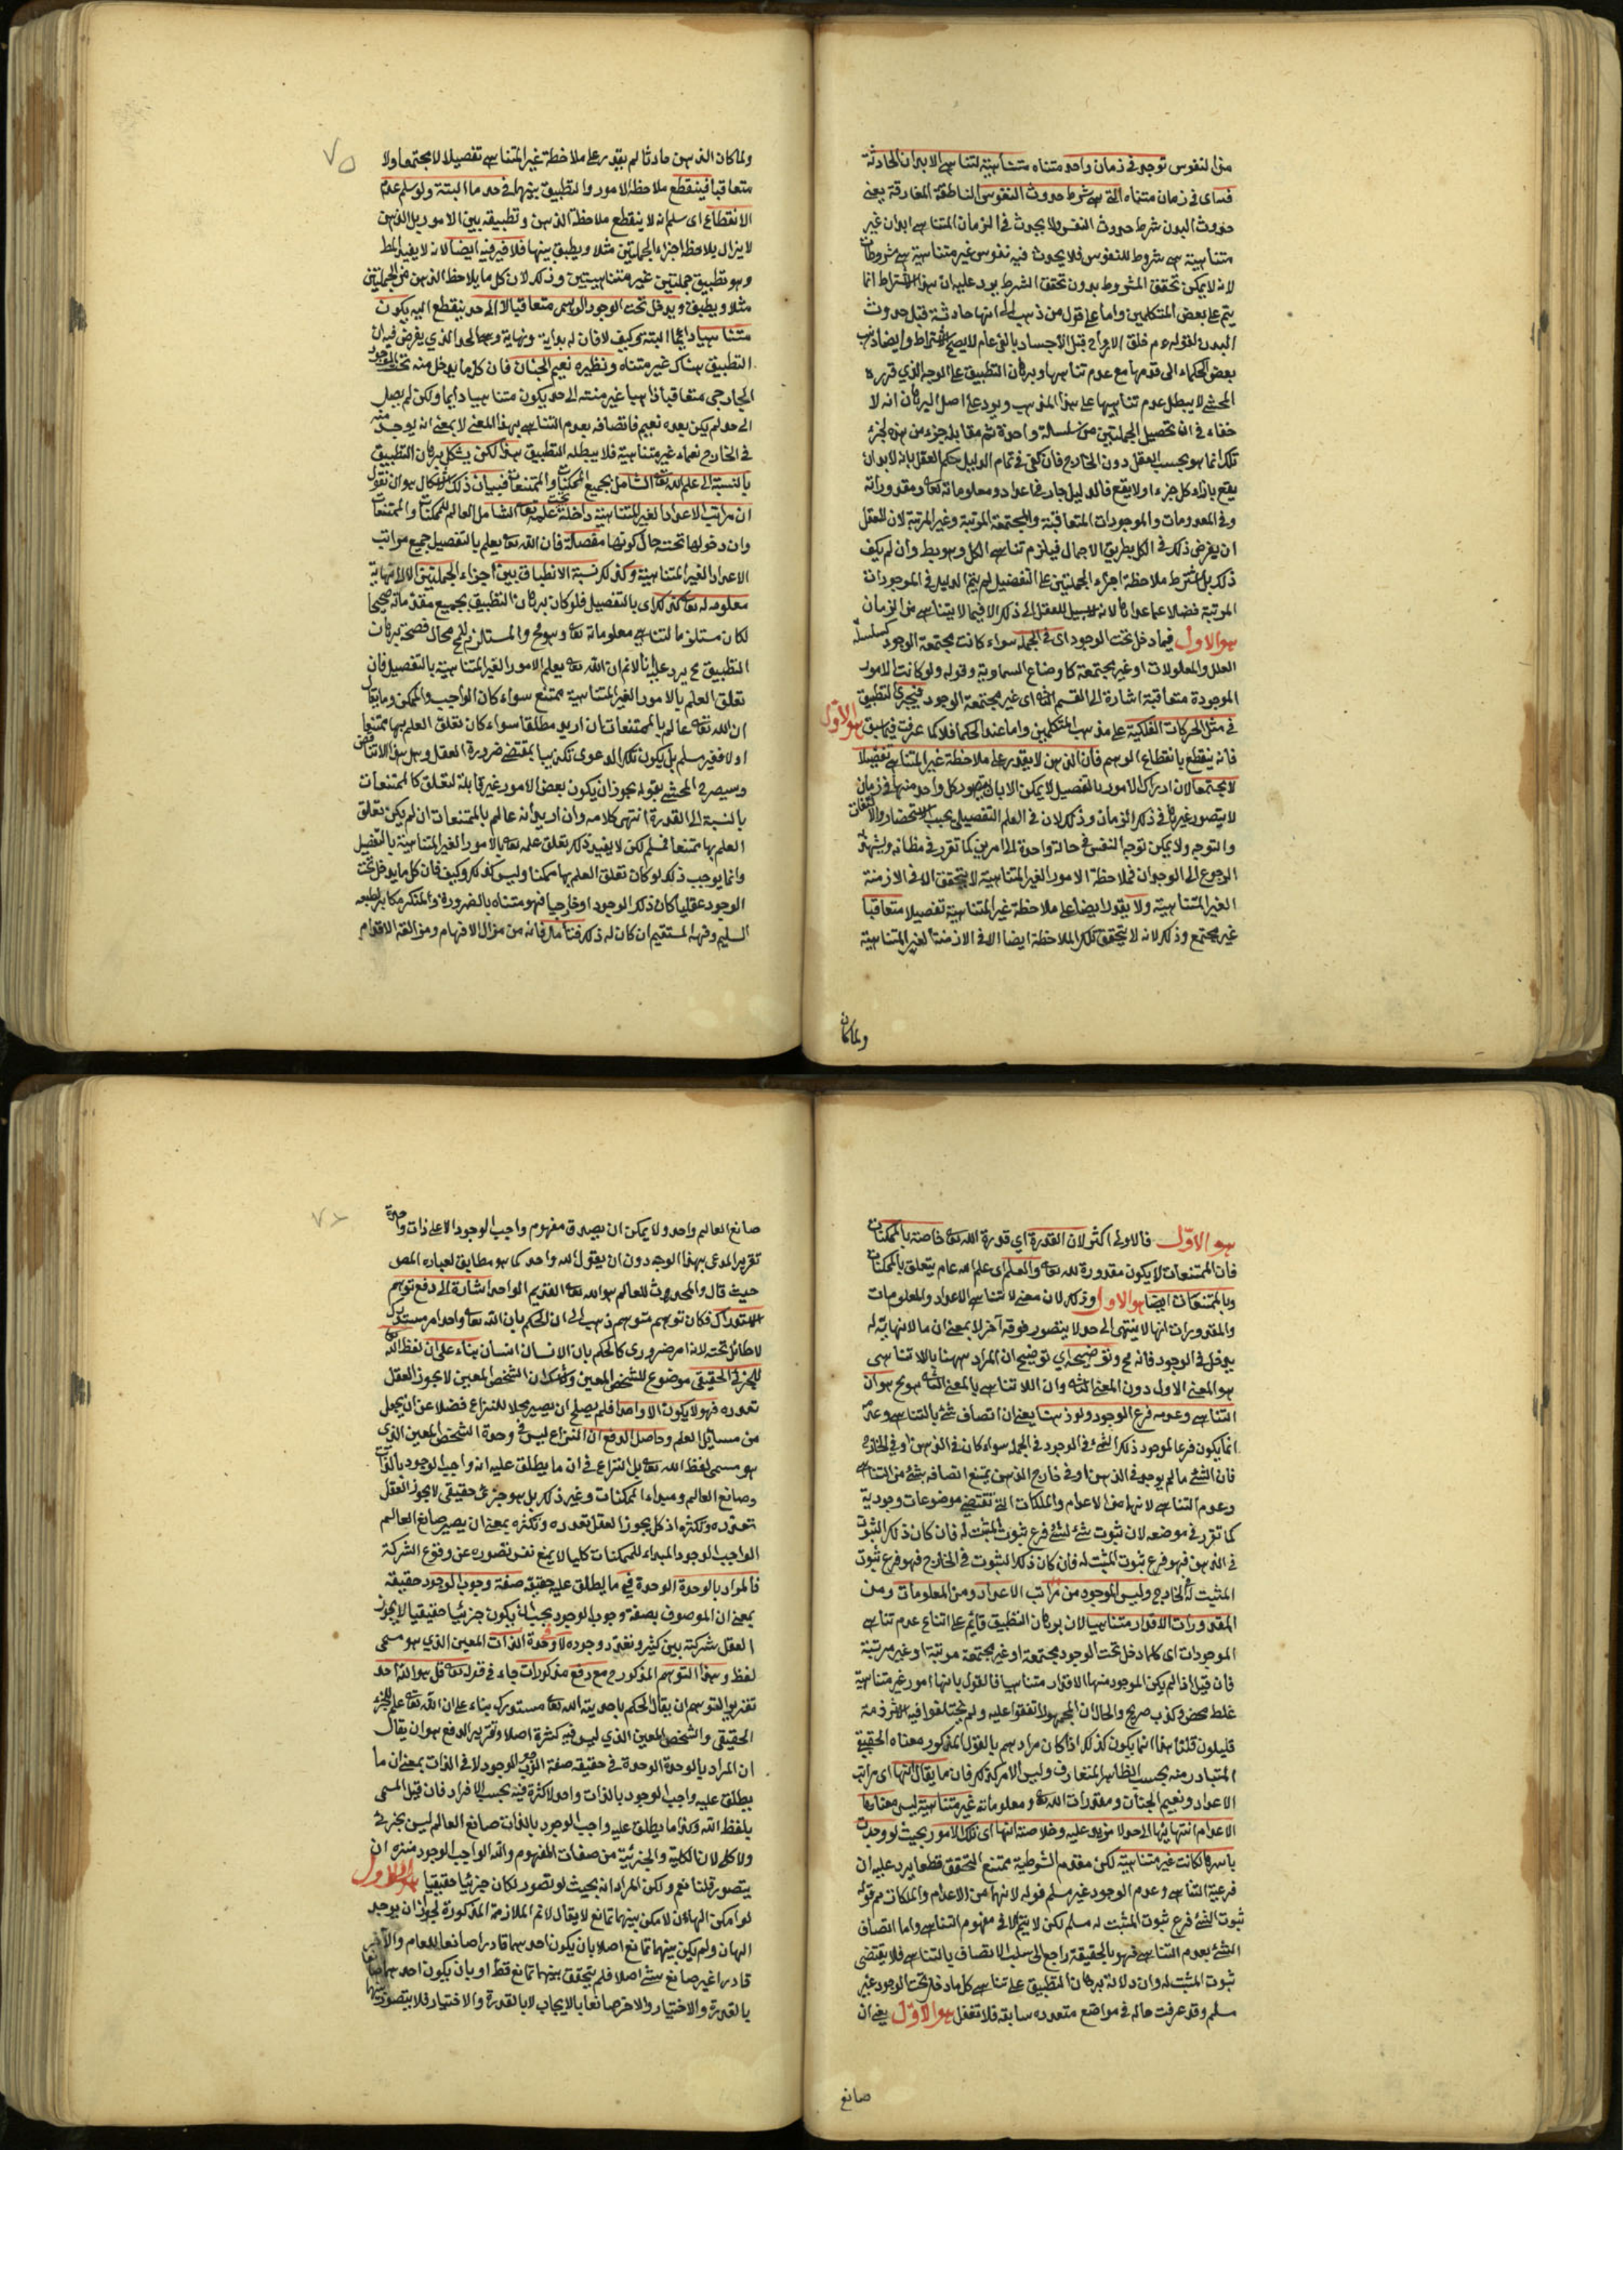 من النفوس توجد في زمان واحد متناه متناهية لتناهي الابدان الحادثة
في زمان متناه التي هي شرط حدوث النفوس الناطقة المفارقة يعني
حدوث البدن شرط حدوث النفس ولا يحدث في الزمان المتناهي ابدان غير
متناهية هي شروط للنفوس فلا يحدث فيه نفوس غير متناهية هي مشروطات
لانه لا يمكن تحقق المشروط بدون تحقق الشرط يرد عليه ان هذا الاشتراط انما
يتم على بعض المتكلمين واما على قول من ذهب الى انها حادثة قبل حدوث
البدن لقوله عم خلق الارواح قبل الاجساد بالفي عام لا يصح الاشتراط وايضا ذهب
بعض الحكماء الى قدمها مع عدم تناهيها وبرهان التطبيق على الوجه الذي قرره
المحشي لا يبطل عدم تناهيها على هذا المذهب ويرد على اصل البرهان انه لا
خفاء في ان تحصيل الجملتين من سلسلة واحدة ثم مقابلة جزء من هذه لجزء
تلك انما هو بحسب العقل دون الخارج فان كفى في تمام الدليل حكم العقل بانه لابد ان
يقع بازاء كل جزء اولا يقع فالدليل جار في اعداد ومعلوماته تع ومقدوراته
وفي المعدومات والموجودات المتعاقبة والمجتمعة المرتبة وغير المرتبة لان للعقل
ان يفرض ذلك في الكل بطريق الاجمال فيلزم تناهي الكل وهو بط وان لم يكف
ذلك بل اشترط ملاحظة اجزاء الجملتين على التفصيل لم يتم الدليل في الموجودات
المرتبة فضلا عما عداها لانه لا سبيل للعقل الى ذلك الا فيما لا يتناهى من الزمان
هو الاول فيما دخل تحت الوجود اى في الجملة سواء كانت مجتمعة الوجود كسلسلة
العلل والمعلولات او غير مجتمعة كاوضاع السماوية وقوله ولو كانت الامور
الموجودة متعاقبة اشارة الى القسم الثاني اى غير مجتمعة الوجود فيجري التطبيق
في مثل الحركات الفلكية على مذهب المتكلمين واما عند الحكما فلا كما عرفت فيما سبق هو الاول
فانه ينقطع بانقطاع الوهم فان الذهن لا يقدر على ملاحظة غير المتناهي تفصيلا
لا مجتمعا لان ادراك الامور بالتفصيل لا يمكن الا بان يتصور كل واحد منها في زمان
لا يتصور غيرها في ذلك الزمان وذلك لان في العلم التفصيلي يجب الاستحضار والالتفات
والتوجه ولا يمكن توجه النفس في حالة واحدة الى امرين كما تقرر في مظانه ويشهد له
الرجوع الى الوجدان فملاحظة الامور الغير المتناهية لا يتحقق الا في الازمنة
الغير المتناهية ولا يقدر ايضا على ملاحظة غير المتناهية تفصيلا متعاقبا
غير مجتمع وذلك لانه لا يتحقق تلك الملاحظة ايضا الا في الازمنة الغير المتناهية
ولما كان
٧٥
ولما كان الذهن حادثا لم يقدر على ملاحظة غير المتناهي تفصيلا لا مجتمعا ولا
متعاقبا فينقطع ملاحظة الامور والتطبيق بينهما في حد ما البتة ولو سلم عدم
الانقطاع اى سلم انه لا ينقطع ملاحظة الذهن وتطبيقه بين الامور بل الذهن
لا يزال يلاحظ اجزاء الجملتين مثلا ويطبق بينها فلا ضير فيه ايضا لانه لا يفيد المط
وهو تطبيق جملتين غير متناهيتين وذلك لان كل ما يلاحظ الذهن من الجملتين
مثلا ويطبق ويدخل تحت الوجود الوهمي متعاقبا لا الى حد ينقطع اليه يكون
متناهيا دائما البتة وكيف لا فان له بداية ونهاية وهو الحد الذي يفرض فيه ان
التطبيق هناك غير متناه ونظيره نعيم الجنان فان كل ما يدخل منه تحت الوجود
الخارجي متعاقبا ذاهبا غير منته الى حد يكون متناهيا دايما ولكن لم يصل
الى حد لم يكن بعده نعيم فاتصافه بعدم التناهي بهذا المعنى لا بمعنى انه يوجد منه
في الخارج نعماء غير متناهية فلا يبطله التطبيق هذا لكن يشكل برهان التطبيق
بالنسبة الى علم الله تع الشامل بجميع الممكنات والممتنعات فبيان ذلك الاشكال هو ان نقول
ان مراتب الاعداد الغير المتناهية داخلة تحت علمه تع الشامل العالم للممكنات والممتنعات
وان دخولها تحته حال كونها مفصلة فان الله تع يعلم بالتفصيل جميع مراتب
الاعداد الغير المتناهية وكذلك نسبة الانطباق بين اجزاء الجملتين الى لا نهاية
معلومة له تع كذلك اى بالتفصيل فلو كان برهان التطبيق بجميع مقدماته صحيحا
لكان مستلزما لتناهي معلوماته تع وهو مح والمستلزم للمح محال فصحة برهان
التطبيق مح يرد عليه انا لا نم ان الله تع يعلم الامور الغير المتناهية بالتفصيل فان
تعلق العلم بالامور الغير المتناهية ممتنع سواء كان الواجب والممكن وما يقال
ان الله تع عالم بالممتنعات ان اريد مطلقا سواء كان تعلق العلم بها ممتنعا
اولا فغير مسلم بل يكون تلك الدعوى تكذيبا بمقتضى ضرورة العقل وهل هذا الا تناقض
وسيصرح المحشي بقوله يجوز ان يكون بعض الامور غير قابلة لتعلق كالممتنعات
بالنسبة الى القدرة انتهى كلامه وان اريد انه عالم بالممتنعات ان لم يكن تعلق
العلم بها ممتنعا فمسلم لكن لا يفيد ذلك تعلق علمه تع بالامور الغير المتناهية بالتفصيل
وانما يوجب ذلك لو كان تعلق العلم بها ممكنا وليس كذلك وكيف فان كل ما يدخل تحت
الوجود عقليا كان ذلك الوجود او خارجيا فهو متناه بالضرورة والمنكر مكابر لطبعه
السليم وفهمه المستقيم ان كان له ذلك فتأمل فانه من مزال الافهام ومزالقة الاقدام
هو الاول فالاولى اكثر لان القدرة اي قدرة الله تع خاصة بالممكنات
فان الممتنعات لا يكون مقدورة لله تعالى والعلم اى علم الله عام يتعلق بالممكنات
وبالممتنعات ايضا هو الاول وذلك لان معنى لا تناهي الاعداد والمعلومات
والمقدورات انها لا ينتهي الى حد لا يتصور فوقه آخر لا بمعنى ان ما لا نهاية له
يدخل في الوجود فانه مح وتوضيحه اي توضيح ان المراد ههنا باللاتناهي
هو المعنى الاول دون المعنى الثاني وان اللاتناهي بالمعنى الثاني هو مح هو ان
التناهي وعدمه فرع الوجود ولو ذهنا يعني ان اتصاف شئ بالتناهي وعدمه
انما يكون فرعا لوجود ذلك الشئ في الوجود في الجملة سواء كان في الذهن او في الخارج
فان الشئ ما لم يوجد في الذهن او في خارج الذهن يمتنع اتصافه بشئ من التناهي
وعدم التناهي لانهما من الاعدام والملكات التي تقتضي موضوعات وجودية
كما تقرر في موضعه لان ثبوت شئ لشئ فرع ثبوت المثبت له فان كان ذلك الثبوت
في الذهن فهو فرع ثبوت المثبت له فان كان ذلك الثبوت في الخارج فهو فرع ثبوت
المثبت له في الخارج وليس الموجود من مراتب الاعداد ومن المعلومات ومن
المقدورات الا قدر متناهيا لان برهان التطبيق قائم على امتناع عدم تناهي
الموجودات اى كلما دخل تحت الوجود مجتمعة او غير مجتمعة مرتبة او غير مرتبة
فان قيل اذا لم يكن الموجود منها الا قدر متناهيا فالقول بانها امور غير متناهية
غلط محض وكذب صريح والحال ان الجمهور اتفقوا عليه ولم يختلفوا فيه الا شرذمة
قليلون قلنا هذا انما يكون كذلك اذا كان مرادهم بالقول المذكور معناه الحقيقي
المتبادر منه بحسب الظاهر المتعارف وليس الامر كذلك فان ما يقال انها اى مراتب
الاعداد ونعيم الجنان ومقدورات الله تع ومعلوماته غير متناهية ليس معناها
الا عدم انتهائها الى حد لا مزيد عليه وخلاصته انها اى تلك الامور بحيث لو وجدت
باسرها لكانت غير متناهية لكن مقدم الشرطية ممتنع التحقق قطعا يرد عليه ان
فرعية التناهي وعدم الوجود غير مسلم قوله لانهما من الاعدام والملكات مم قوله
ثبوت الشئ فرع ثبوت المثبت له مسلم لكن لا يتم الا في مفهوم التناهي واما اتصاف
الشئ بعدم التناهي فهو بالحقيقة راجع الى سلب الاتصاف بالتناهي فلا يقتضى
ثبوت المثبت له وان دلالة برهان التطبيق على تناهي كل ما دخل تحت الوجود غير
مسلم وقد عرفت حاله في مواضع متعددة سابقة فلا تغفل هو الاول يعني ان
صانع
٧٦
صانع العالم واحد ولا يمكن ان يصدق مفهوم واجب الوجود الا على ذات واحدة
تقرير المدعى بهذا الوجه دون ان يقول الله واحد كما هو مطابق لعبارة المص
حيث قال والمحدث للعالم هو الله تع القديم الواحد اشارة الى دفع توهم
الاستدراك فكان توهم متوهم ذهب الى ان الحكم بان الله تع واحد امر مستدرك
لا طائل تحته لانه امر ضروري كالحكم بان الانسان انسان بناء على ان لفظ الله
للجزئي الحقيقي موضوع للشخص المعين ولا شك ان الشخص المعين لا يجوز العقل
تعدده فهو لا يكون الا واحدا فلم يصلح ان يصير محلا للنزاع فضلا عن ان يجعل
من مسائل العلم وحاصل الدفع ان النزاع ليس في وحدة الشخص المعين الذي
هو مسمى لفظ الله تع بل النزاع في ان ما يطلق عليه انه واجب الوجود بالذات
وصانع العالم ومبداء الممكنات وغير ذلك بل هو جزئي حقيقي لا يجوز العقل
تعدده وتكثره اذ كل يجوز العقل تعدده وتكثره بمعنى ان يصير صانع العالم
الواجب الوجود المبداء للممكنات كليا لا يمنع نفس تصوره عن وقوع الشركة
فالمراد بالوحدة الوحدة في ما يطلق عليه حقيقة صفة وجوب الوجود حقيقة
بمعنى ان الموصوف بصفة وجوب الوجود يجب ان يكون جزئيا حقيقيا لا يجوز
العقل شركته بين كثير وتعدد وجوده لا وحدة الذات المعين الذي هو مسمى
لفظ وهذا التوهم المذكور مع دفع مذكورات جاء في قوله تع قل هو الله احد
تقرير التوهم ان يقال الحكم باحدية الله تع مستدرك بناء على ان الله تع علم للجزئي
الحقيقي والشخص المعين الذي ليس فيه كثرة اصلا وتقرير الدفع هو ان يقال
ان المراد بالوحدة الوحدة في حقيقة صفة الوجوب الوجود لا في الذات بمعنى ان ما
يطلق عليه واجب الوجود بالذات واحد لا كثرة فيه بحسب الافراد فان قيل المسمى
بلفظ الله وكذا ما يطلق عليه واجب الوجود بالذات صانع العالم ليس بجزئي
ولا كلي لان الكلية والجزئية من صفات المفهوم والله الواجب الوجود منزه ان
يتصور قلنا نعم ولكن المراد انه بحيث لو تصور لكان جزئيا حقيقيا هو الاول
لو امكن الهان لامكن بينهما تمانع لا يقال لا نم الملازمة المذكورة لجواز ان يوجد
الهان ولم يكن بينهما تمانع اصلا بان يكون احدهما قادرا صانعا للعالم والاخر
قادرا غير صانع بشئ اصلا فلم يتحقق بينهما تمانع قط او بان يكون احدهما صانعا
بالقدرة والاختيار والاخر صانعا بالايجاب لا بالقدرة والاختيار فلا يتصور بينهما